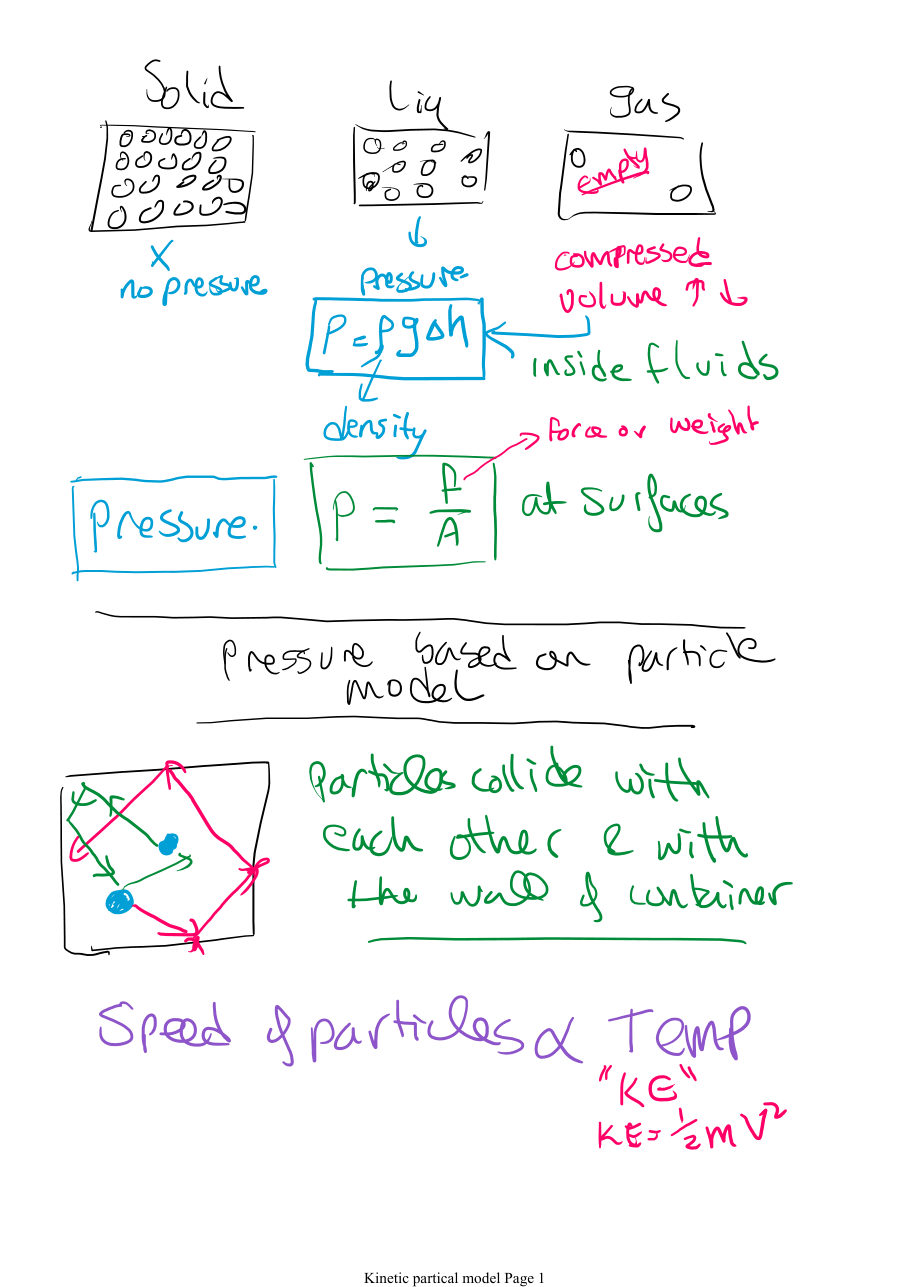 Solid Liq gas
empty
X
no pressure
pressure
compressed
volume ↑ ↓
P = ρgΔh
inside fluids
density
force or weight
Pressure.
P = F/A
at surfaces
Pressure based on particle
model
Particles collide with
each other & with
the wall of container
Speed of particles ∝ Temp
"KE"
KE = ½ m V²
Kinetic partical model Page 1